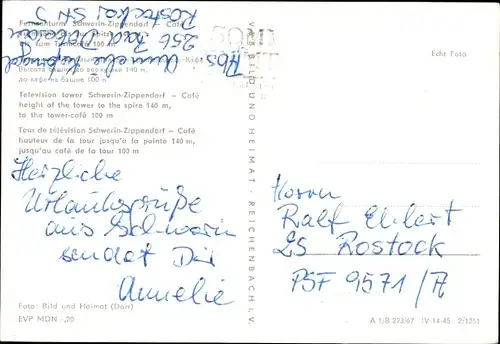 Fernsehturm Schwerin-Zippendorf – Café
Höhe des Turmes bis zur Spitze 140 m,
bis zum Turmcafé 100 m
Высота башни 140 м,
до кафе на башне 100 м
Television tower Schwerin-Zippendorf – Café
height of the tower to the spire 140 m,
to the tower-café 100 m
Tour de télévision Schwerin-Zippendorf – Café
hauteur de la tour jusqu'à la pointe 140 m,
jusqu'au café de la tour 100 m
Abs
Annelie
256 Bad Doberan
Rostocker Str.
Herzliche
Urlaubsgrüße
aus Schwerin
sendet Dir
Annelie
Foto: Bild und Heimat (Dorr)
EVP MDN -,20
VEB BILD UND HEIMAT · REICHENBACH i. V.
Echt Foto
Herrn
Ralf Ehlert
25 Rostock
PSF 9571/A
A 1/B 273/67 IV-14-45 2/1351